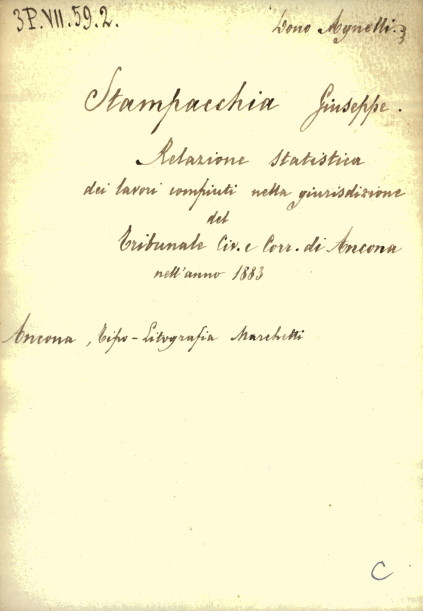 3P.VII.59.2.
Dono Agnelli.
Stampacchia Giuseppe.
Relazione statistica
dei lavori compiuti nella giurisdizione
del
Tribunale Civ. e Corr. di Ancona
nell'anno 1883
Ancona, Tipo-Litografia Marchetti
C